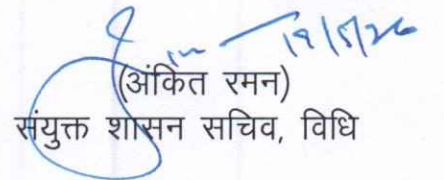 19/5/26
(अंकित रमन)
संयुक्त शासन सचिव, विधि